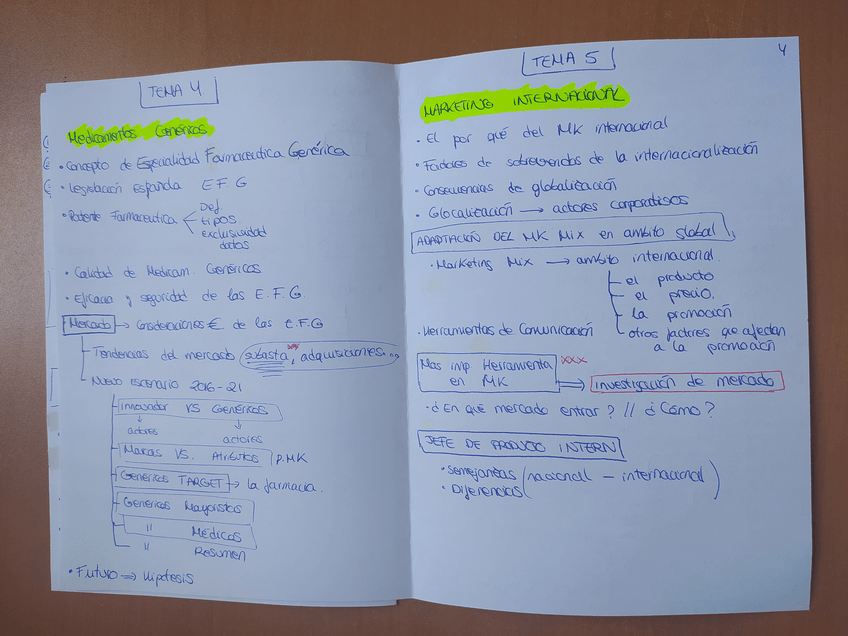 TEMA 4
Medicamentos Genéricos
• Concepto de Especialidad Farmaceutica Genérica
• Legislación española E F G
• Patente Farmaceutica
Def
tipos
exclusividad
datos
• Calidad de Medicam. Genéricos
• Eficacia y seguridad de las E.F.G.
• Mercado → Consideraciones € de las E.F.G
Tendencias del mercado (subasta, adquisiciones...)
Nuevo escenario 2016-21
innovador VS Genéricos
↓ ↓
actores actores
Marcas VS. Atributos P.MK
Genéricos TARGET → la farmacia.
Genéricos Mayoristas
" Médicos
" Resumen
• Futuro ⇒ Hipotesis
4
TEMA 5
MARKETING INTERNACIONAL
• El por qué del MK internacional
• Factores de sobrevenidos de la internacionalización
• Consecuencias de globalización
• Glocalización → actores corporativos
ADAPTACIÓN DEL MK MIX en ambito global
• Marketing Mix → ambito internacional.
el producto
el precio.
la promoción
otros factores que afectan
a la promoción
• Herramientas de Comunicación
Mas imp Herramienta
en MK
xxx
⇒ investigación de mercado
• ¿En qué mercado entrar? // ¿Cómo?
JEFE DE PRODUCTO INTERN
• Semejanzas (nacional - internacional)
• Diferencias